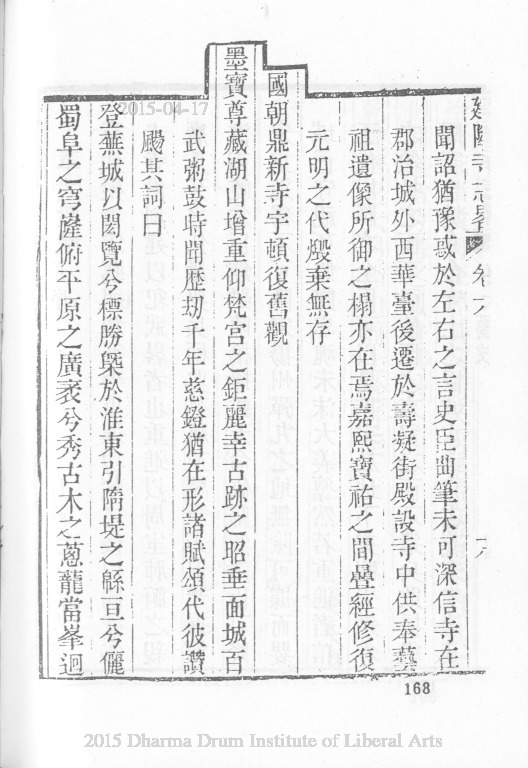 建隆寺志畧 卷六
十六
聞詔猶豫惑於左右之言史臣曲筆未可深信寺在
郡治城外西華臺後遷於壽凝街殿設寺中供奉藝
祖遺像所御之榻亦在焉嘉熙寶祐之間疊經修復
元明之代燬棄無存
國朝鼎新寺宇頓復舊觀
墨寶尊藏湖山增重仰梵宫之鉅麗幸古跡之昭垂面城百
武粥鼓時聞歷刼千年慈鐙猶在形諸賦頌代彼讚
颺其詞曰
登蕪城以閎覽兮標勝槩於淮東引隋堤之緜亘兮儷
蜀阜之穹窿俯平原之廣袤兮秀古木之蔥蘢當峯迴
168
2015-04-17
2015 Dharma Drum Institute of Liberal Arts